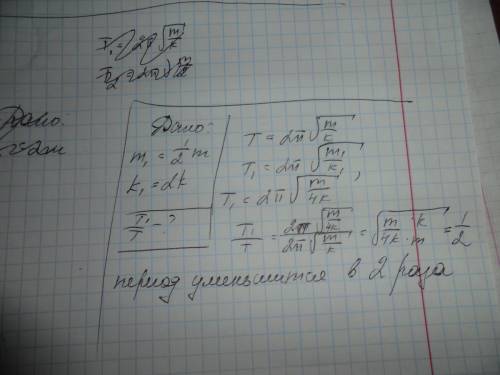 T₁ = 2π√(m/k)
Дано:
m₁ = 1/2 m
k₁ = 2k
T₁/T - ?
T = 2π√(m/k)
T₁ = 2π√(m₁/k₁),
T₁ = 2π√(m/4k)
T₁/T = 2π√(m/4k) / 2π√(m/k) = √(m/4k · k/m) = 1/2
период уменьшится в 2 раза